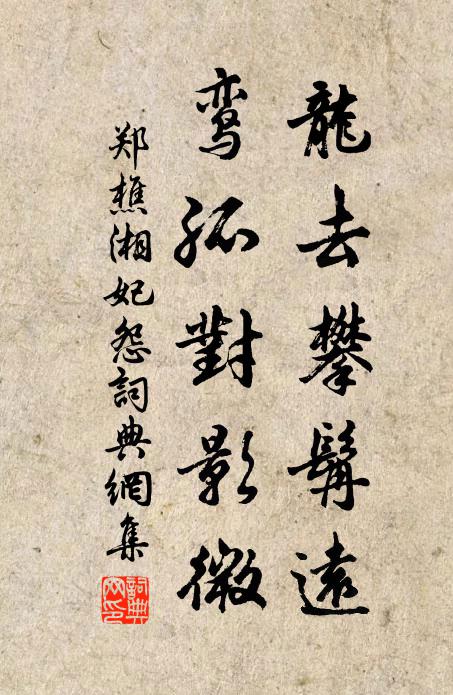 龍去攀髯遠
鸾孤對影微
郑樵湘妃怨詞典網集
詞典网印